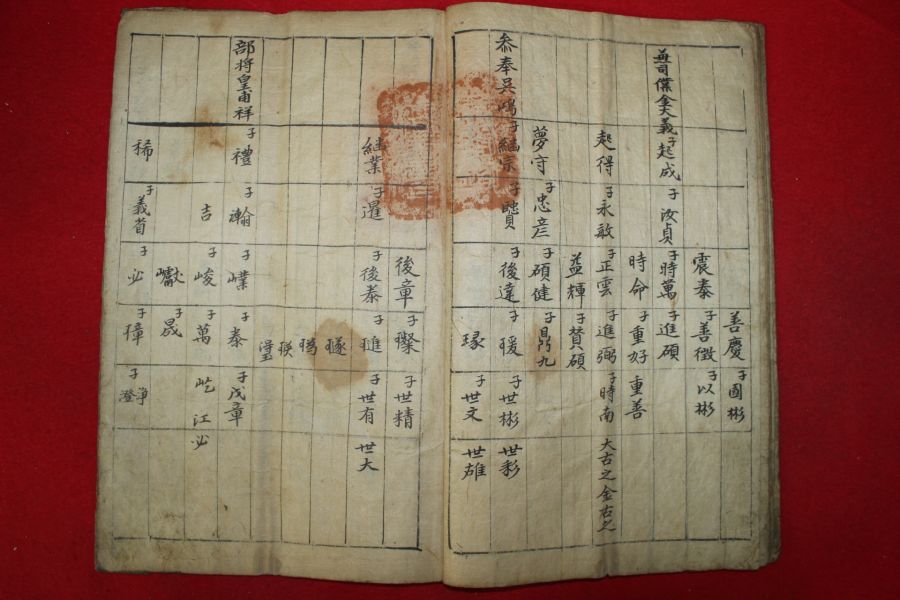 善慶 子國彬
震泰 子善徵 子以彬
兼司僕金大義 子起成 子汝貞 子時萬 子進碩
時命 子重好 重善
起得 子永敏 子正雲 子進弼 子時南 大古之金右之
益輝 子贊碩
夢守 子忠彦 子碩健 子鼎九
叅奉吳鳴 子繼宗 子贇 子後達 子暖 子世彬 世彩
琢 子世文 世雄
後章 子璨 子世精
継業 子暹 子後泰 子璡 子世有 世大
璲
瑛
瀅
部將皇甫祥 子禮 子瀚 子㠎 子泰 子戊章
吉 子峻 子萬 屹 江 必
巘 子晟
稀 子義荀 子必 子璋 子澄 淨